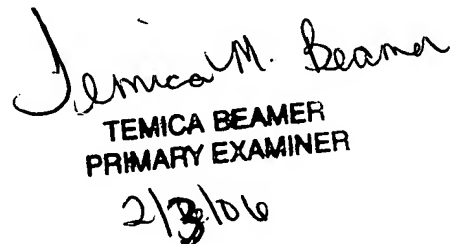 Temica M. Beamer
TEMICA BEAMER
PRIMARY EXAMINER
2/3/06